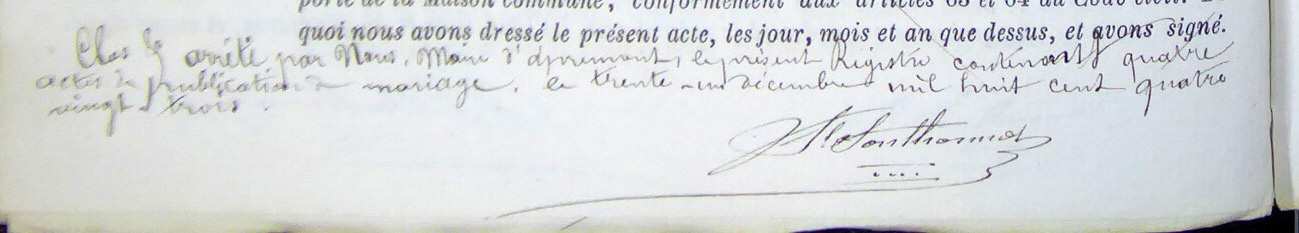 porte de la Maison commune, conformément aux articles 63 et 64 du Code civil.
quoi nous avons dressé le présent acte, les jour, mois et an que dessus, et avons signé.
Clos & arrêté par Nous, Maire d'Apremont, le présent Registre contenant quatre
actes de publication de mariage, le trente-un décembre mil huit cent quatre
vingt-trois.